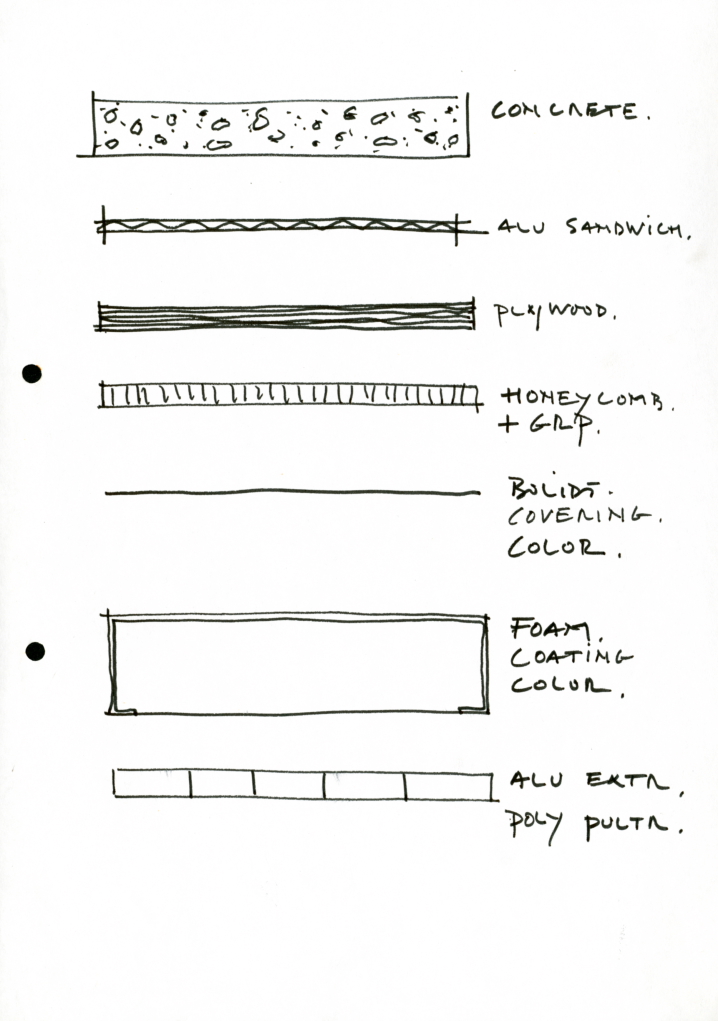 CONCRETE.
ALU SANDWICH.
PLYWOOD.
HONEYCOMB.
+ GRP.
BOLIDT.
COVERING.
COLOR.
FOAM.
COATING
COLOR.
ALU EXTR.
POLY PULTR.